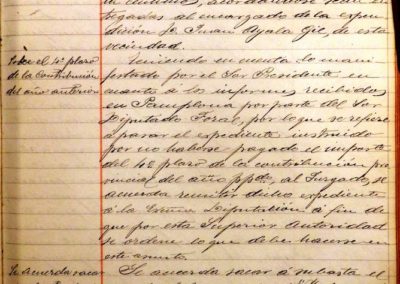 tregadas al encargado de la expen
dición D. Juan Ayala Gil, de esta
vecindad.
Sobre el 4º plazo
de la Contribución
del año anterior
Teniendo en cuenta lo mani
festado por el Sor Presidente en
cuanto a los informes recibidos
en Pamplona por parte del Sor
Diputado Foral, por lo que se refiere
a pasar el expediente instruido
por no haberse pagado el importe
del 4º plazo de la contribución pro
vincial del año ppdo, al Juzgado, se
acuerda remitir dicho expediente
á la Excma Diputación á fin de
que por esta Superior Autoridad
se ordene lo que debe hacerse en
este asunto.
Se acuerda sacar
Se acuerda sacar á subasta el